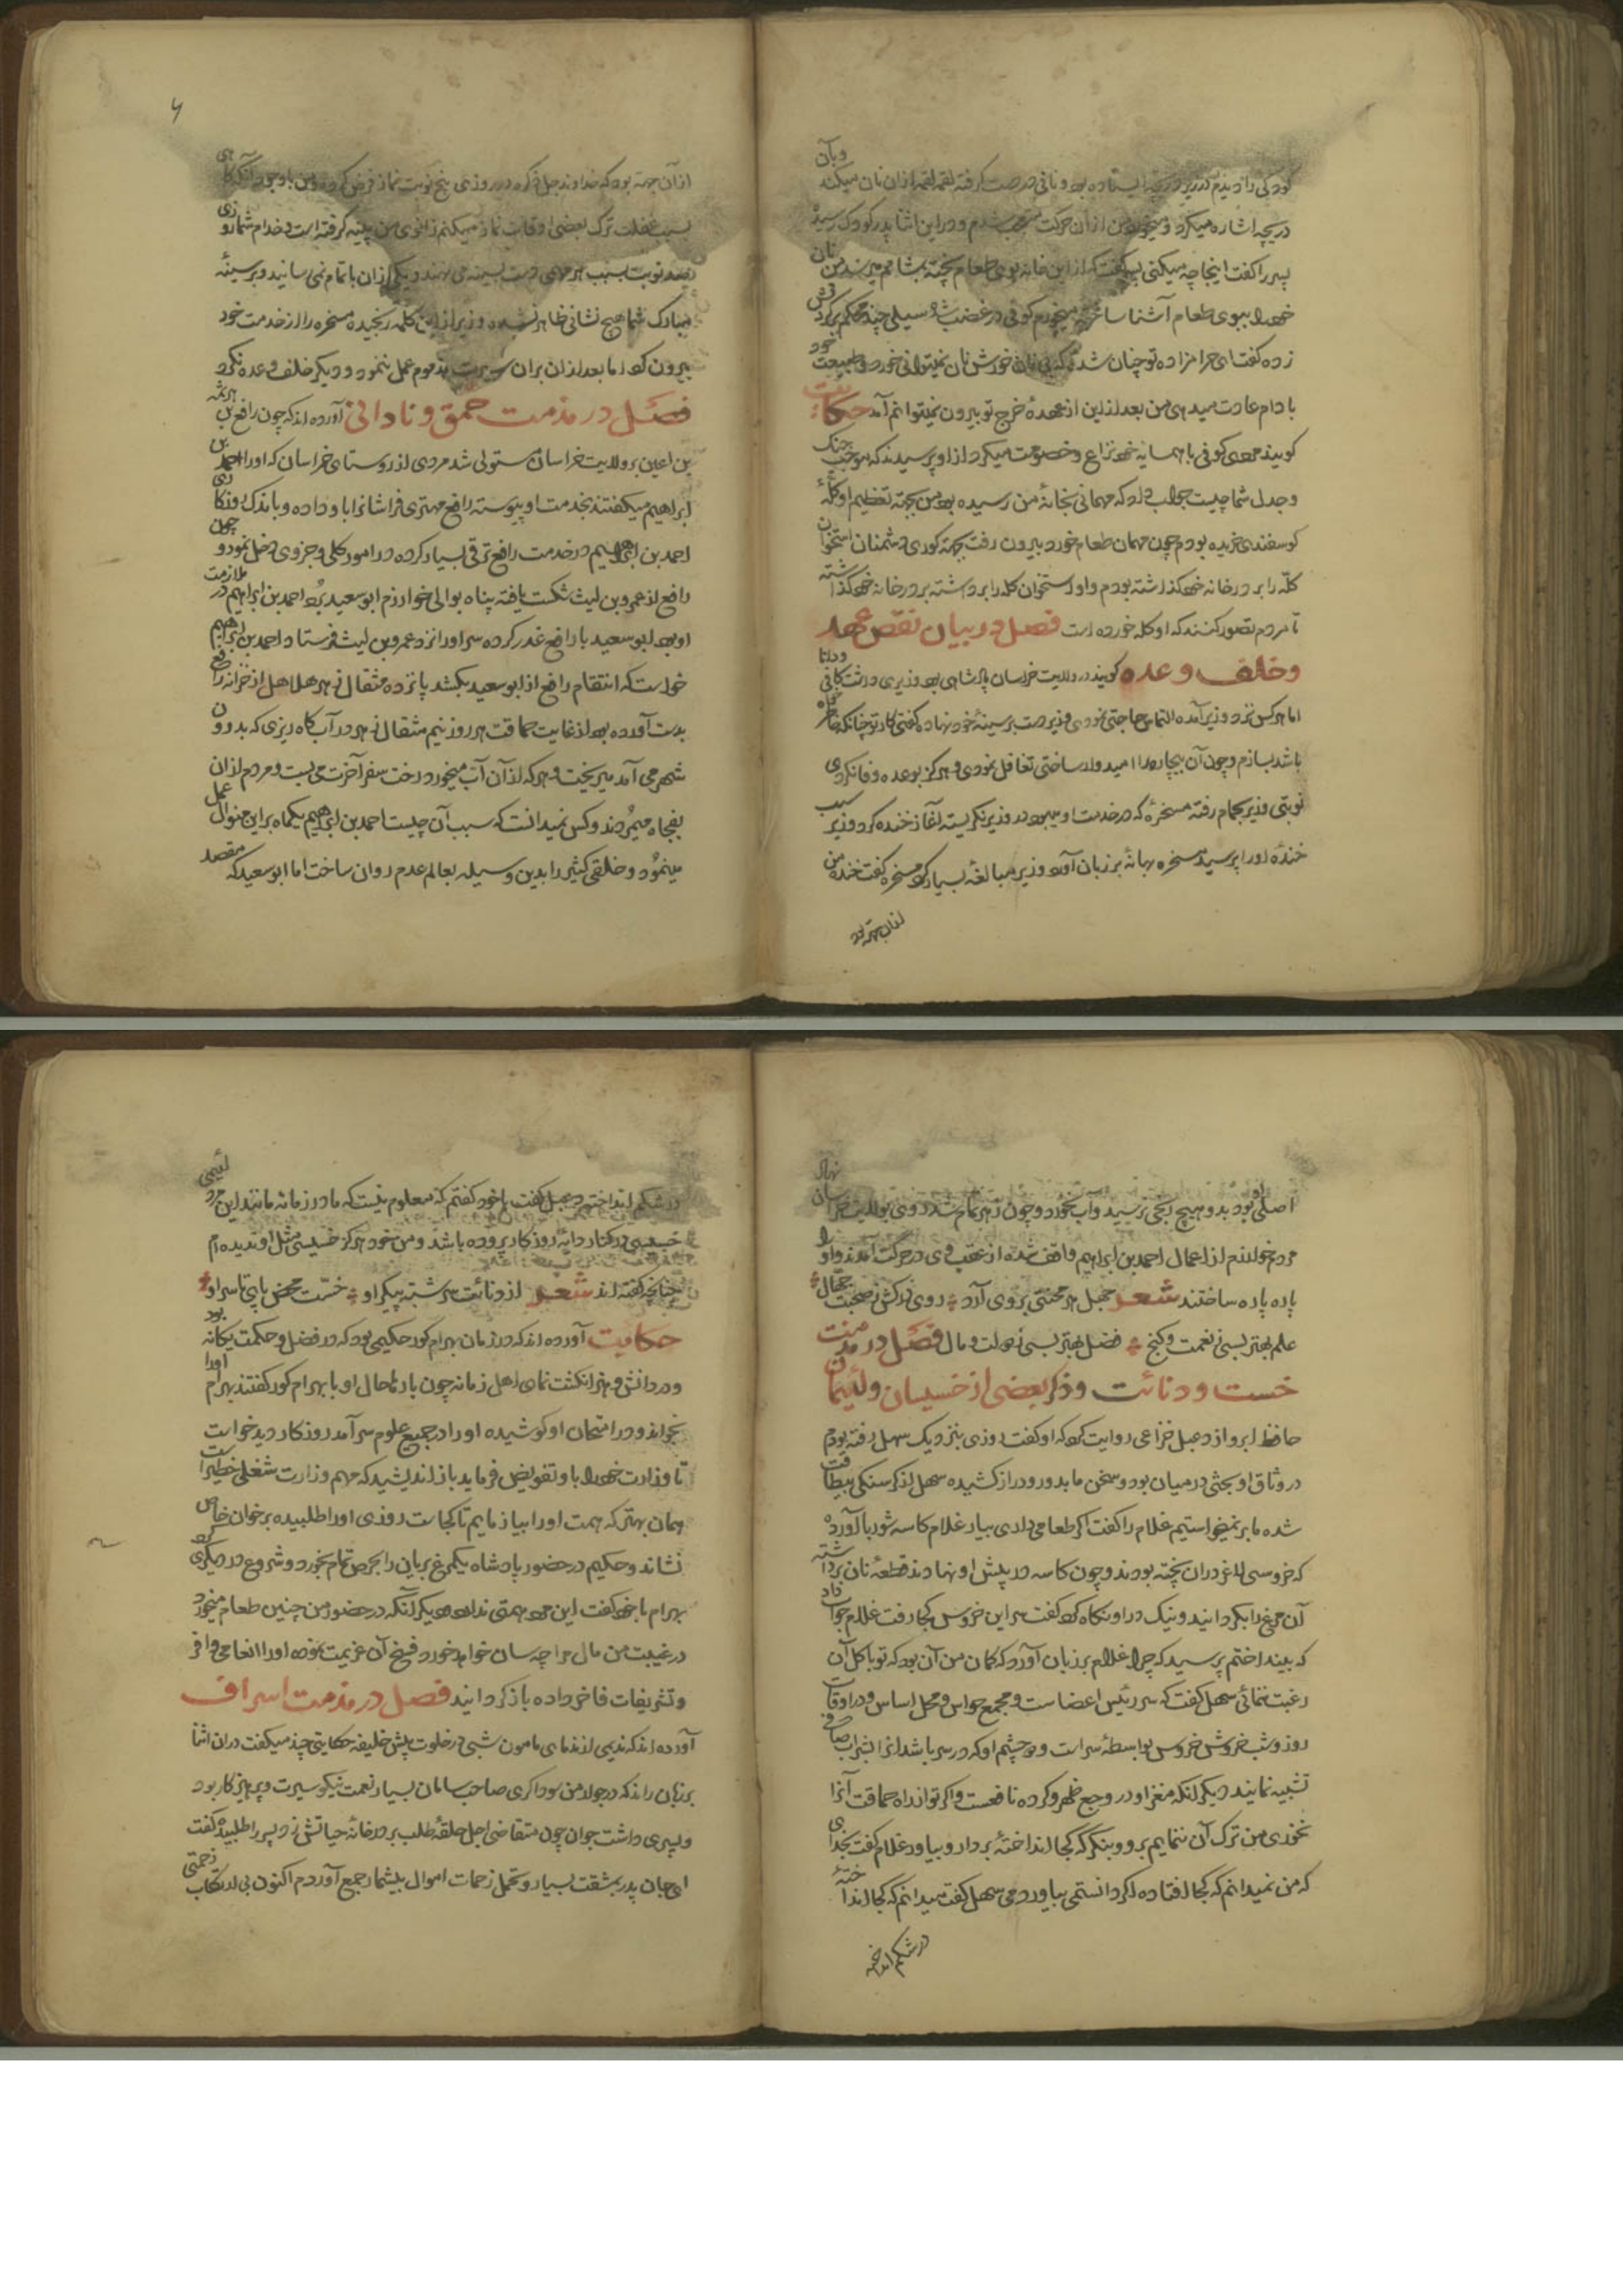 کودکی را دیدم در زیر دریچه ایستاده بود و نانی در دست گرفته لقمه لقمه از ان نان میکند وبآن
دریچه اشاره میکرد و میخورد من از ان حرکت متعجب شدم و در این اثنا پدر کودک رسیده
پسر را گفت اینجا چه میکنی پسر گفت که از این خانه بوی طعام پخته بمشامم میرسد من نان
خود را ببوی طعام آشنا ساخته میخورم کوفی در غضب شده سیلی چند محکم بر کردنش
زده گفت ای حرامزاده تو چنان شدهٔ که بی نان خورش نان نمیتوانی خورد و طبیعت خود
بادام عادت میدهی من بعد از این از عهدهٔ خرج تو بیرون نمیتوانم آمد حکایت
کویند مردی کوفی با همسایه خود نزاع و خصومت میکرد از او پرسیدند که موجب جنک
و جدل شما چیست جواب داد که مهمانی بخانهٔ من رسیده بود من بجهته تعظیم او کلهٔ
کوسفندی خریده بودم چون مهمان طعام خورد بیرون رفت بجهته کوری دشمنان استخوان
کلّه را بر در خانه خود کذاشته بودم و او استخوان کله را برداشته بر در خانه خود کذاشته
تا مردم تصور کنند که او کله خورده است فصل در بیان نقض عهد
وخلف وعده کویند در ولایت خراسان پادشاهی بود وزیری داشت کافی ودانا
اما هر کس نزد وزیر آمده التماس حاجتی نمودی وزیر دست بر سینهٔ خود نهاده کفتی کار تو چنانکه خاطرخواه
باشد بسازم و چون آن بیچاره را امیدوار ساختی تغافل نمودی و هرکز بوعده وفا نکردی
نوبتی وزیر بحمام رفته مسخرهٔ که در خدمت او میبود در وزیر نکریسته آغاز خنده کرد وزیر سبب
خندهٔ او را پرسید مسخره بهانهٔ بر زبان آورد وزیر مبالغهٔ بسیار کرد مسخره کفت خنده من
از ان جهته بود
۶
از آن جهته بود که خداوند جل ذکره در روزی پنج نوبت نماز فرض کرده و من باوجود آنکه کاهی
بسبب غفلت ترک بعضی اوقات نماز میکنم زانوی من پینه کرفته است و خدام شما روزی
صد نوبت بسبب هر مهمی دست بسینه می نهند و یکی از ان با تمام نمی سانید و بر سینهٔ
مبارک شما هیچ نشانی ظاهر نشده وزیر از این کلمه رنجیده مسخره را از خدمت خود
بیرون کرد اما بعد از ان بران سیرت مذموم عمل ننمود و دیکر خلف وعده نکرد
فصل در مذمت حمق و نادانی آورده اند که چون رافع بن هرثمه
بن اعین بر ولایت خراسان مستولی شد مردی از روستای خراسان که او را احمد بن
ابراهیم میکفتند بخدمت او پیوسته رافع مهتری فراشانرا باو داده و باندک روزکاری
احمد بن ابراهیم در خدمت رافع ترقی بسیار کرده در امور کلی و جزوی دخل نمود و چون
رافع از عمرو بن لیث شکست یافته پناه بوالی خوارزم ابو سعید برد احمد بن ابراهیم در ملازمت
او بود ابو سعید با رافع غدر کرده سر او را نزد عمرو بن لیث فرستاد و احمد بن ابراهیم
خواست که انتقام رافع از ابو سعید بکشد پانزده مثقال زهر هلاهل از خزانه رافع
بدست آورده بود از غایت حماقت هر روز نیم مثقال زهر در آب کاه ریزی که بدرون
شهر می آمد میریخت و هر که از آن آب میخورد رخت سفر آخرت می بست و مردم از ان
بفجاه میمُردند و کس نمیدانست که سبب آن چیست احمد بن ابراهیم یکماه بر این منوال عمل
مینمُود و خلقی کثیر را بدین وسیله بعالم عدم روان ساخت اما ابو سعید که مقصد
اصلی او بود بدو هیچ رنجی نرسید و آب نخورد و چون زهر تمام شد روی بولایت خراسان نهاد
مردم خوارزم از اعمال احمد بن ابراهیم واقف شده از عقب وی در حرکت آمدند و او را
پاره پاره ساختند شعر جهل هر محنتی بروی آرد روی درکش ز صحبت جهّال
علم بهتر بسی ز نعمت و کنج فضل بهتر بسی ز دولت و مال فصل در مذمت
خست و دنائت و ذکر بعضی از خسیسان و لئیمان
حافظ ابرو از دعبل خزاعی روایت کرد که او کفت روزی بنزدیک سهل رفته بودم
در وثاق او بحثی در میان بود و سخن ما بدور و دراز کشیده سهل از کرسنکی بیطاقت
شده ما بر نمیخواستیم غلام را کفت اکر طعامی داری بیار غلام کاسه شوربا آورد
که خروسی لاغر دران پخته بودند و چون کاسه در پیش او نهادند قطعهٔ نان برداشته
آن مرغ را بکردانید و نیک در او نکاه کرد کفت سر این خروس کجا رفت غلام جواب داد
که بینداختم پرسید که چرا غلام بر زبان آورد که کمان من آن بود که تو باکل آن
رغبت ننمائی سهل کفت که سر رئیس اعضاست و مجمع حواس و محل اساس و در اوقات
روز و شب خروش خروس بواسطهٔ سر است و دو چشم او که در سر باشد انرا بشراب صافی
تشبیه نمایند دیکر انکه مغز او در وجع ظهر و کرده نافعست و اکر تو از راه حماقت آنرا
نخوری من ترک آن ننمایم برو و بنکر که کجا انداختهٔ بردار و بیاور غلام کفت بخدای
که من نمیدانم که کجا افتاده اکر دانستمی بیاوردمی سهل کفت میدانم که کجا انداختهٔ
در شکم انداخته
در شکم انداختهٔ دعبل کفت با خود کفتم که معلوم نیست که مادر زمانه مانند این مرد لئیمی
خسیسی در کنار دایهٔ روزکار پرورده باشد و من خود هرکز خسیسی مثل او ندیده ام
چنانچه کفته اند شعر از دنائت سرشته پیکر او خسّت محض پای تا سر او
حکایت آورده اند که در زمان بهرام کور حکیمی بود که در فضل و حکمت یکانه بود
و در دانش و هنر انکشت نمای اهل زمانه چون بارها حال او با بهرام کور کفتند بهرام اورا
بخواند و در امتحان او کوشیده او را در جمیع علوم سر آمد روزکار دید خواست
تا وزارت خود را باو تفویض فرماید باز اندیشید که مهم وزارت شغلی خطیر است
همان بهتر که همت او را بیازمایم تا کجاست روزی او را طلبیده بر خوان خاص
نشاند و حکیم در حضور پادشاه یکمرغ بریان را بحرص تمام بخورد و شروع در دیکری کرد
بهرام با خود کفت این مرد همتی ندارد دیکر آنکه در حضور من چنین طعام میخورد
در غیبت من مال مرا چه سان خواهد خورد فسخ آن عزیمت نموده او را انعامی وافر
و تشریفات فاخر داده باز کردانید فصل در مذمت اسراف
آورده اند که ندیمی از ندمای مامون شبی در خلوت پیش خلیفه حکایتی چند میکفت دران اثنا
بر زبان راند که در جوار من سوداکری صاحب سامان بسیار نعمت نیکو سیرت و پرهیزکار بود
و پسری داشت جوان چون متقاضی اجل حلقهٔ طلب بر در خانهٔ حیاتش زد پسر را طلبیده کفت
ای جان پدر بمشقت بسیار و تحمل زحمات اموال بیشمار جمع آوردم اکنون بی ارتکاب زحمتی